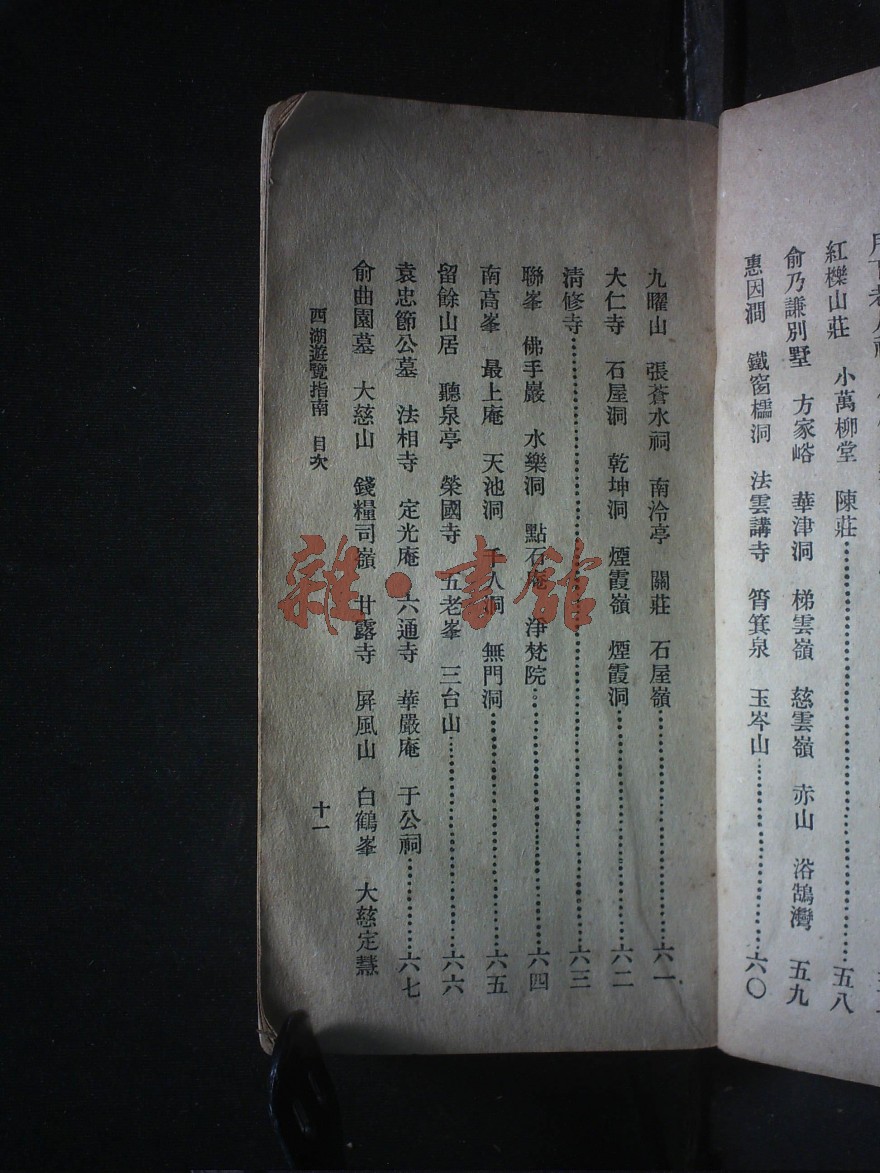 紅櫟山莊　小萬柳堂　陳莊……五八
俞乃謙別墅　方家峪　華津洞　梯雲嶺　慈雲嶺　赤山　浴鵠灣　五九
惠因澗　鐵窗櫺洞　法雲講寺　筲箕泉　玉岑山……六〇
九曜山　張蒼水祠　南泠亭　關莊　石屋嶺……六一
大仁寺　石屋洞　乾坤洞　煙霞嶺　煙霞洞……六二
清修寺……六三
聯峯　佛手巖　水樂洞　點石庵　淨梵院……六四
南高峯　最上庵　天池洞　千人洞　無門洞……六五
留餘山居　聽泉亭　榮國寺　五老峯　三台山……六六
袁忠節公墓　法相寺　定光庵　六通寺　華嚴庵　于公祠……六七
俞曲園墓　大慈山　錢糧司嶺　甘露寺　屏風山　白鶴峯　大慈定慧
西湖遊覽指南　目次　十一
雜·書舘